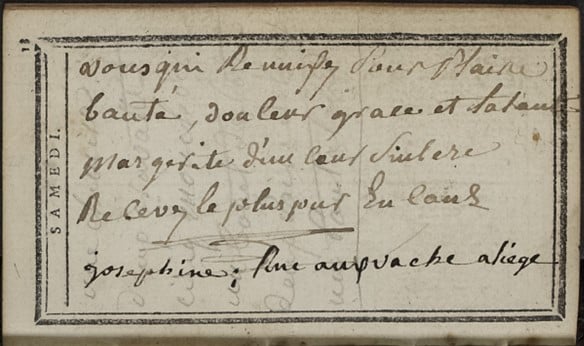 18
SAMEDI.
vous qui Reunisez Pour Plaire
bauté, douleur grace et talant
margerite d'un Cour Sinsere
Recevez le plus pur En Cans
josephine; Rue aux vache a liege